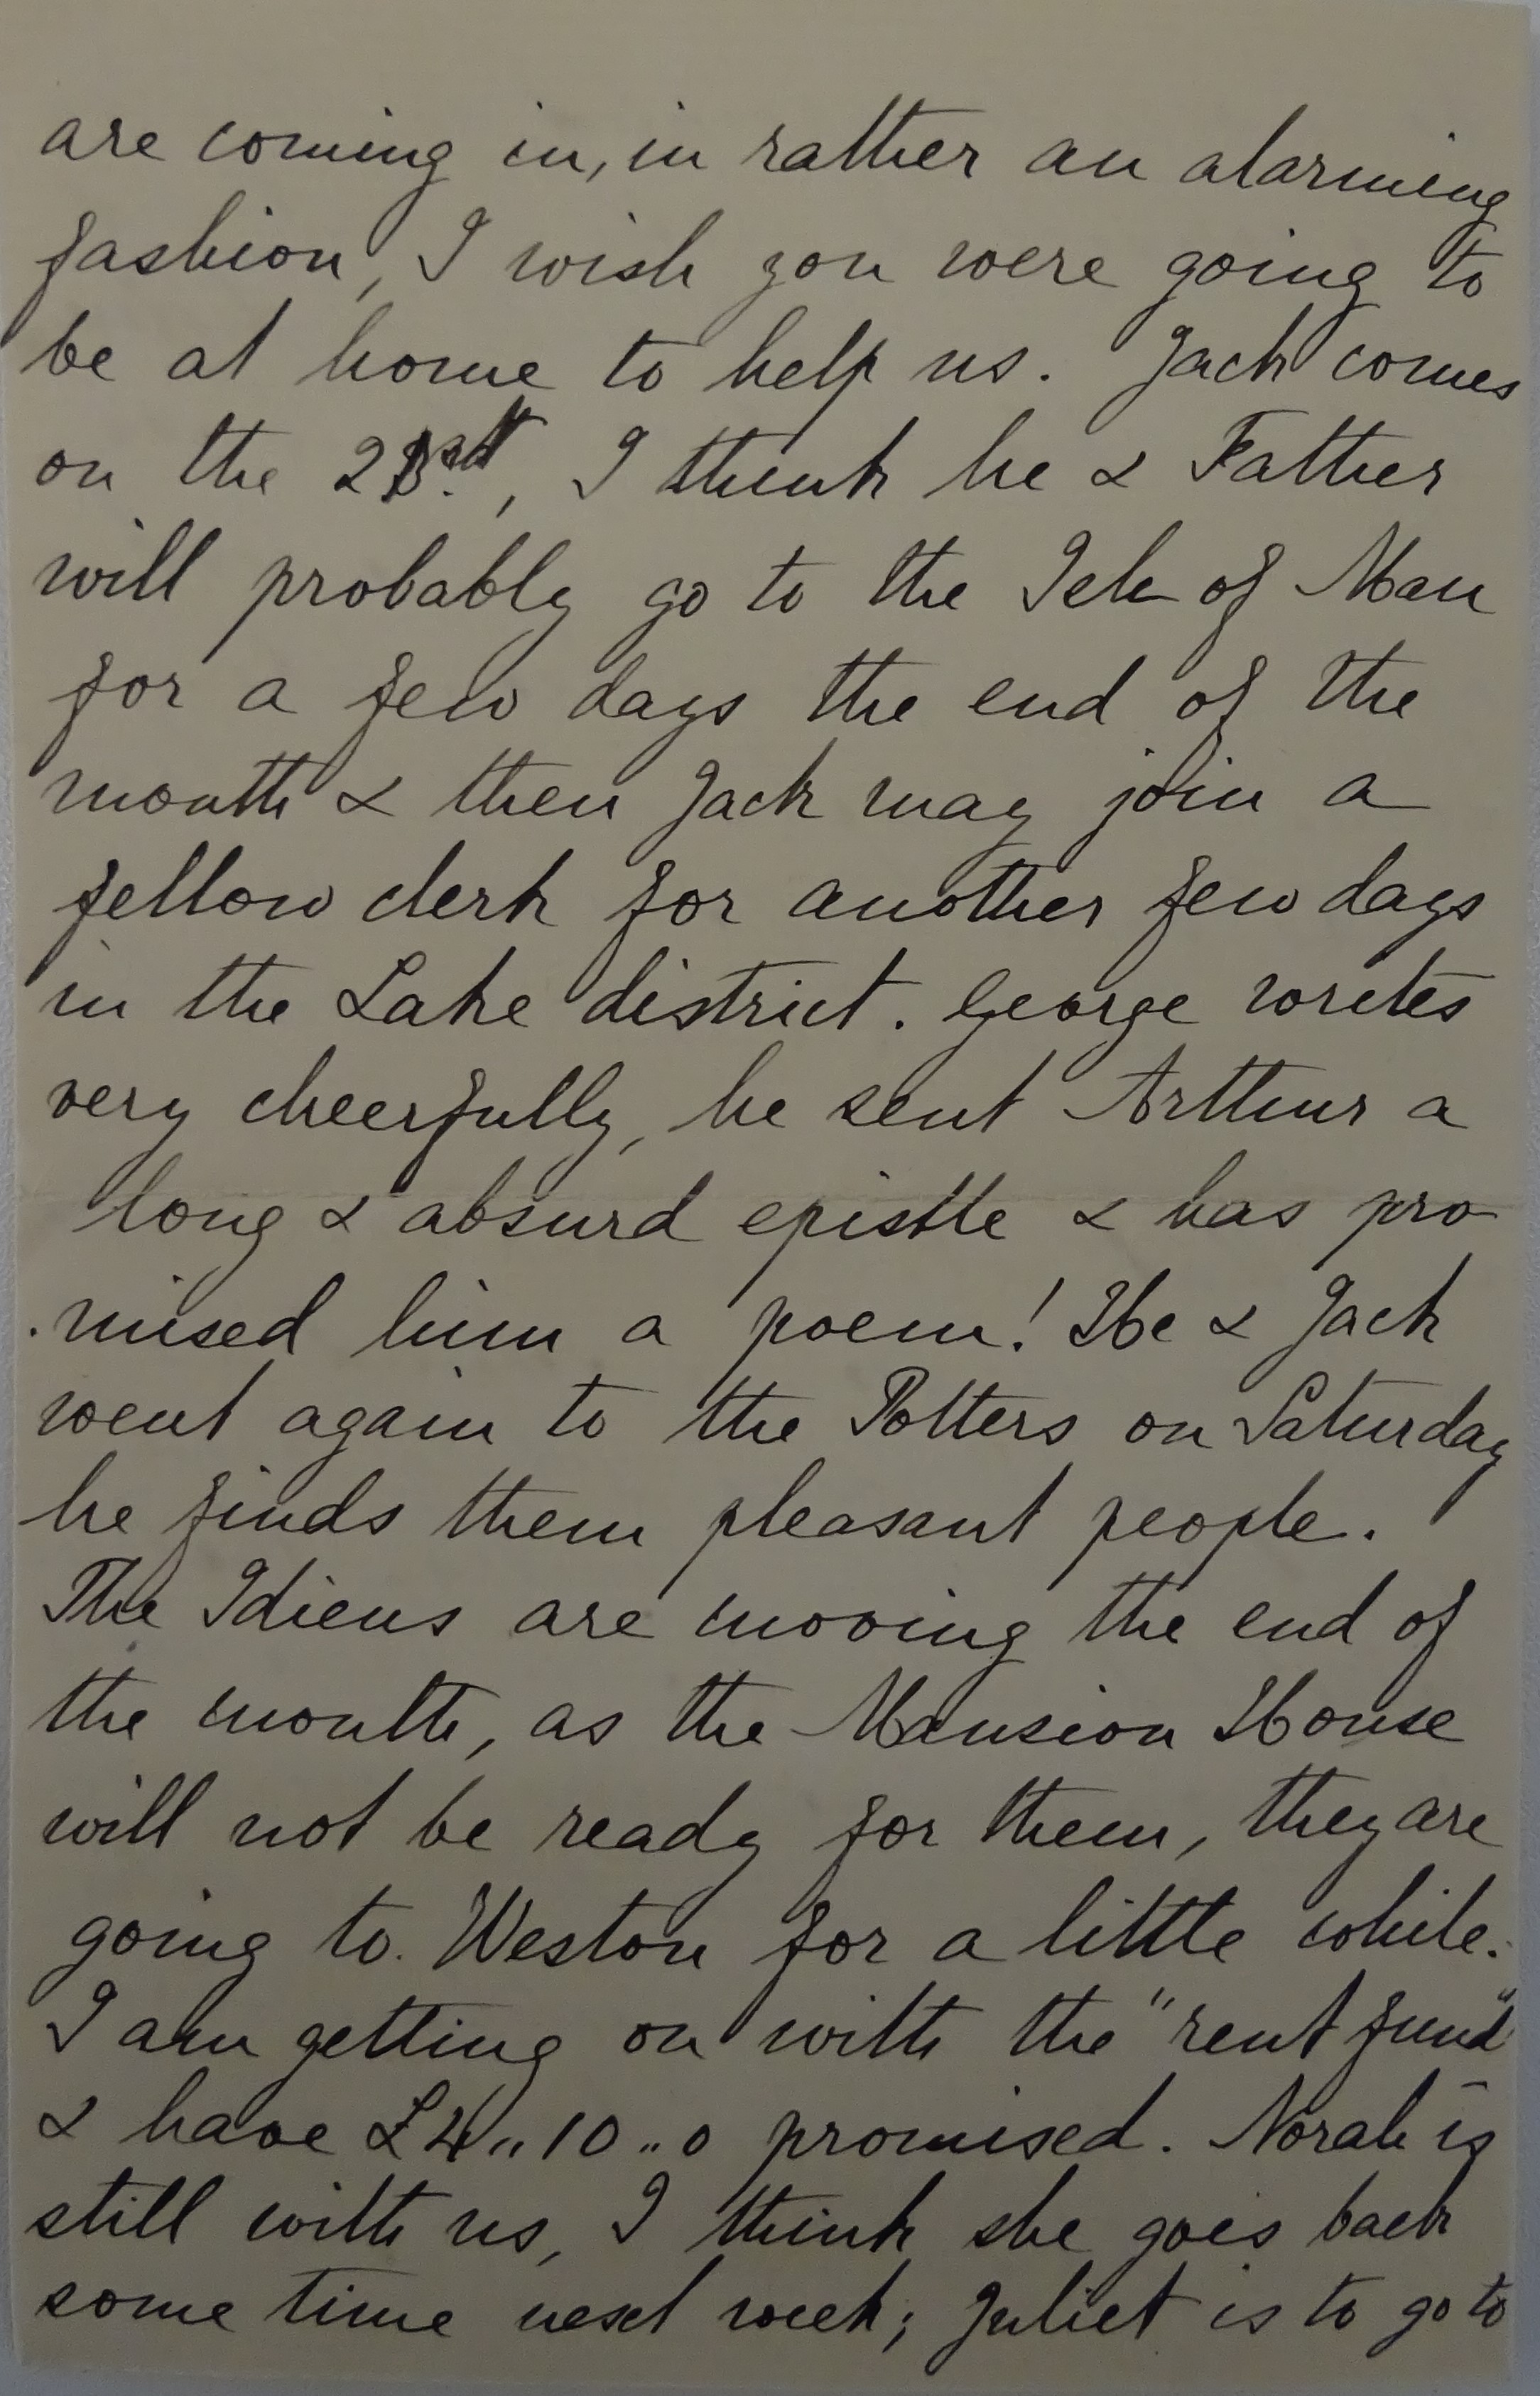 are coming in, in rather an alarming
fashion, I wish you were going to
be at home to help us. Jack comes
on the 23rd, I think he & Father
will probably go to the Isle of Man
for a few days the end of the
month & then Jack may join a
fellow clerk for another few days
in the Lake district. George writes
very cheerfully, he sent Arthur a
long & absurd epistle & has pro
mised him a poem! He & Jack
went again to the Potters on Saturday
he finds them pleasant people.
The Idiens are moving the end of
the month, as the Mansion House
will not be ready for them, they are
going to Weston for a little while.
I am getting on with the "rent fund"
& have £4,,10,,0 promised. Norah is
still with us, I think she goes back
some time next week; Juliet is to go to